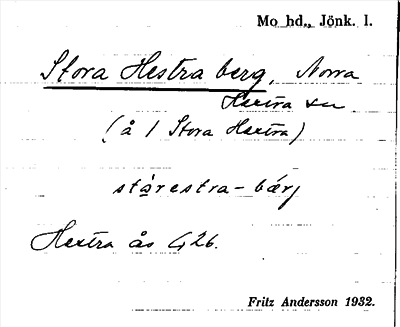 Mo hd., Jönk. l.
Stora Hestra berg, Norra
Hestra sn
(å / Stora Hestra)
Hestra ås G 26.
Fritz Andersson 1932.